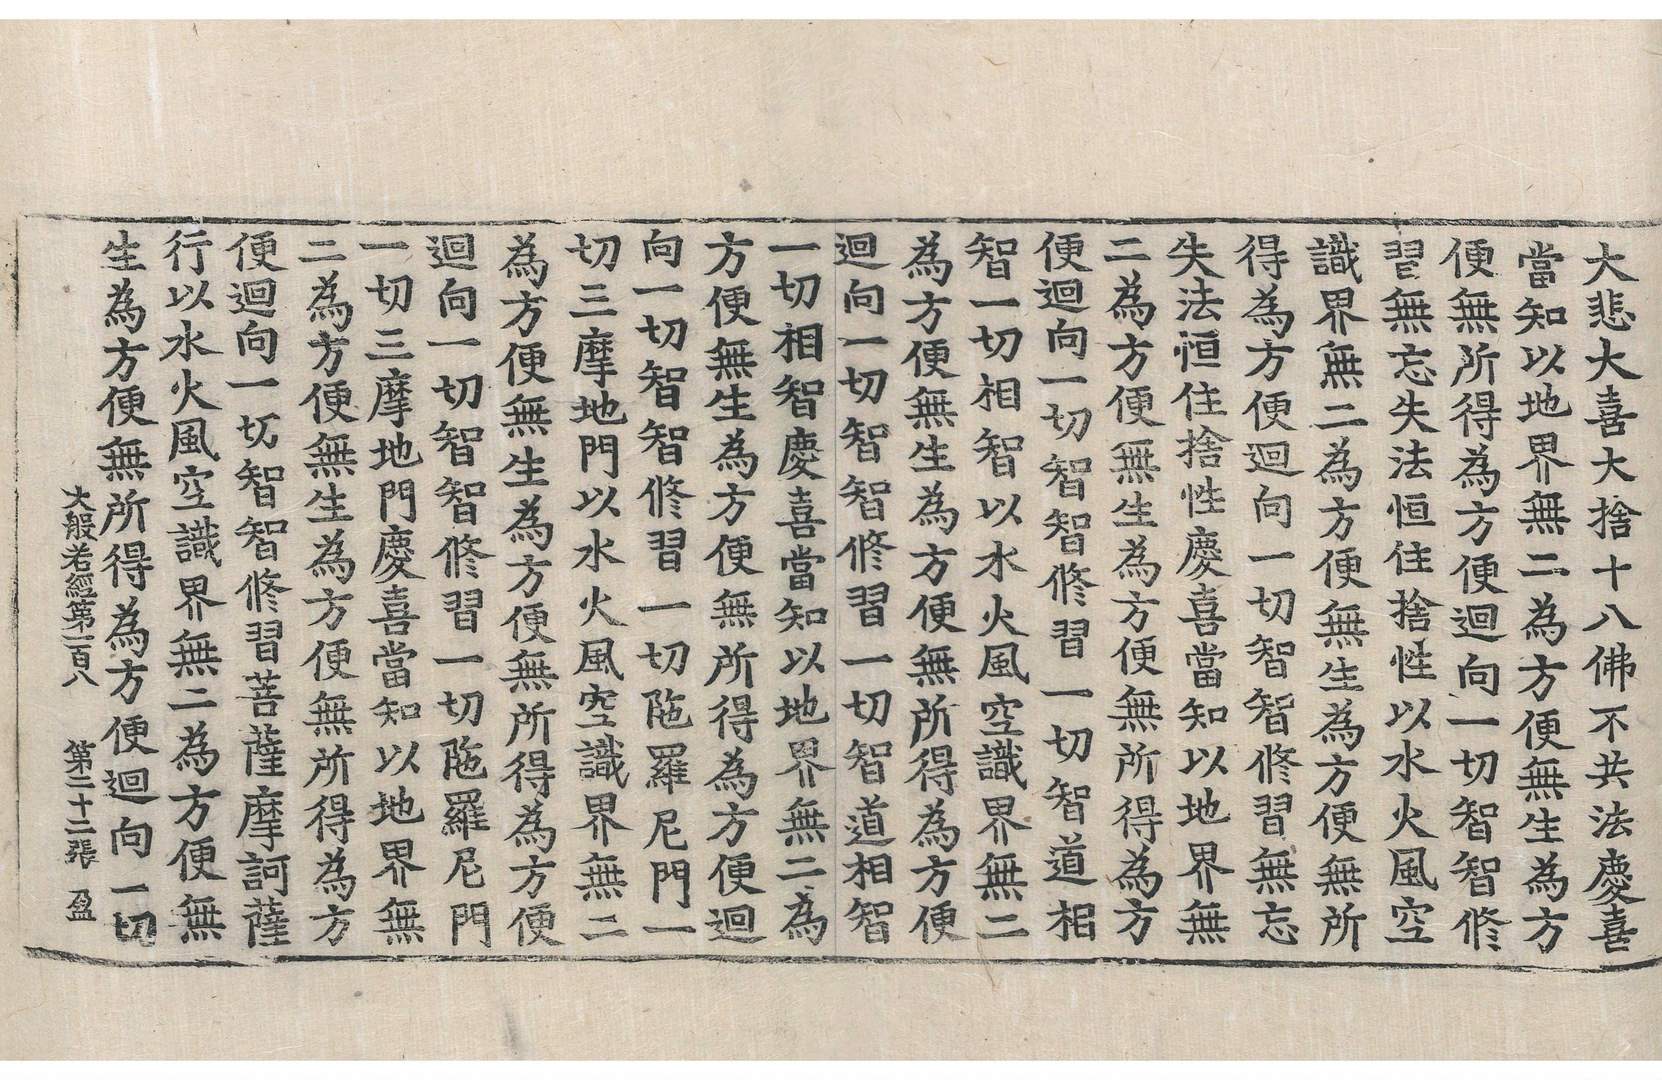 大悲大喜大捨十八佛不共法慶喜
當知以地界無二為方便無生為方
便無所得為方便迴向一切智智修
習無忘失法恒住捨性以水火風空
識界無二為方便無生為方便無所
得為方便迴向一切智智修習無忘
失法恒住捨性慶喜當知以地界無
二為方便無生為方便無所得為方
便迴向一切智智修習一切智道相
智一切相智以水火風空識界無二
為方便無生為方便無所得為方便
迴向一切智智修習一切智道相智
一切相智慶喜當知以地界無二為
方便無生為方便無所得為方便迴
向一切智智修習一切陁羅尼門一
切三摩地門以水火風空識界無二
為方便無生為方便無所得為方便
迴向一切智智修習一切陁羅尼門
一切三摩地門慶喜當知以地界無
二為方便無生為方便無所得為方
便迴向一切智智修習菩薩摩訶薩
行以水火風空識界無二為方便無
生為方便無所得為方便迴向一切
大般若經第一百八 第二十二張 盈